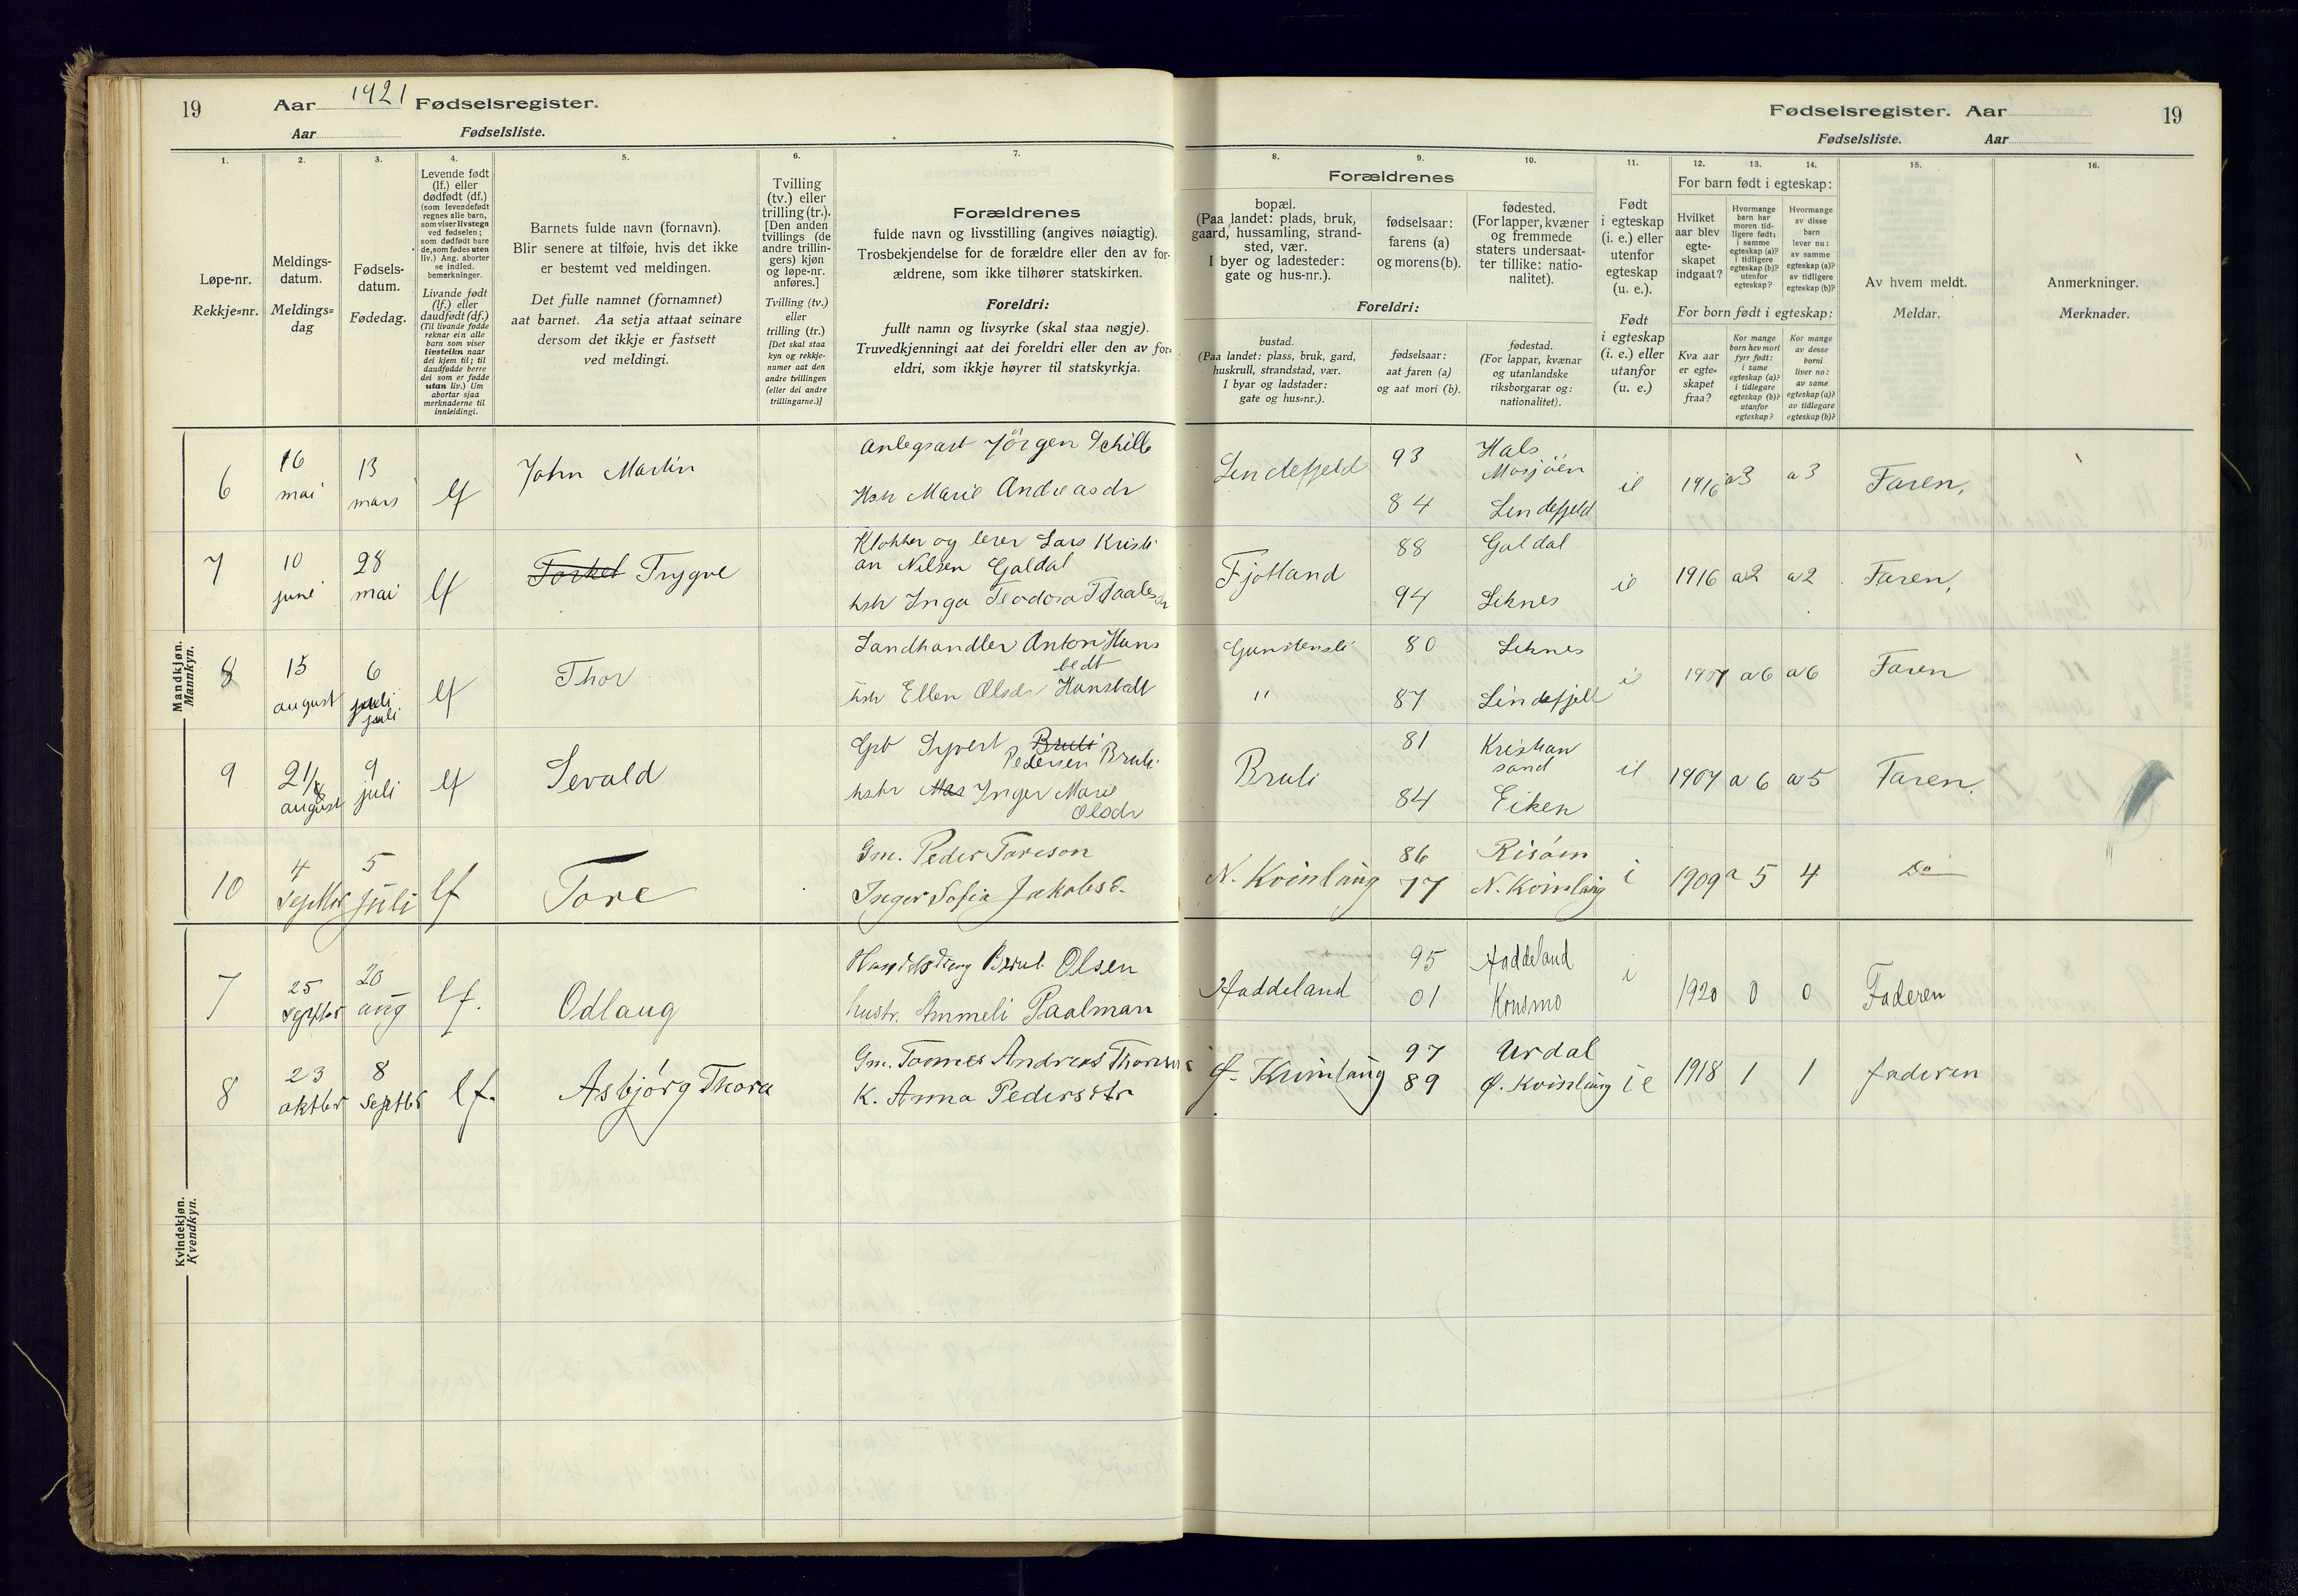 19 Aar 1921 Fødselsregister.
Aar Fødselsliste.
Fødselsregister. Aar 19
Fødselsliste. Aar
1.
Løpe-nr.
Rekkje=nr.
2.
Meldings-
datum.
Meldings=
dag
3.
Fødsels-
datum.
Fødedag.
4.
Levende født
(lf.) eller
dødfødt (df.)
(som levendefødt
regnes alle barn,
som viser livstegn
ved fødselen;
som dødfødt bare
de, som fødes uten
liv.) Ang. aborter
se indled.
bemerkninger.
Livande født
(lf.) eller
daudfødt (df.)
(Til livande fødde
reknar ein alle
barn som viser
livsteikn naar
dei kjem til; til
daudfødde berre
dei som er fødde
utan liv.) Um
abortar sjaa
merknaderne til
innleidingi.
5.
Barnets fulde navn (fornavn).
Blir senere at tilføie, hvis det ikke
er bestemt ved meldingen.
Det fulle namnet (fornamnet)
aat barnet. Aa setja attaat seinare
dersom det ikkje er fastsett
ved meldingi.
6.
Tvilling
(tv.) eller
trilling (tr.).
[Den anden
tvillings (de
andre trillin-
gers) kjøn
og løpe-nr.
anføres.]
Tvilling (tv.)
eller
trilling (tr.)
[Det skal staa
kyn og rekkje-
numer aat den
andre tvillingen
(eller dei andre
trillingarne.)]
7.
Forældrenes
fulde navn og livsstilling (angives nøiagtig).
Trosbekjendelse for de forældre eller den av for-
ældrene, som ikke tilhører statskirken.
Foreldri:
fullt namn og livsyrke (skal staa nøgje).
Truvedkjenningi aat dei foreldri eller den av for=
eldri, som ikkje høyrer til statskyrkja.
Forældrenes
8.
bopæl.
(Paa landet: plads, bruk,
gaard, hussamling, strand-
sted, vær.
I byer og ladesteder:
gate og hus-nr.).
9.
fødselsaar:
farens (a)
og morens (b).
10.
fødested.
(For lapper, kvæner
og fremmede
staters undersaat-
ter tillike: natio-
nalitet).
Foreldri:
bustad.
(Paa landet: plass, bruk, gard,
huskrull, strandstad, vær.
I byar og ladstader:
gate og hus=nr.).
fødselsaar:
aat faren (a)
og aat mori (b).
fødestad.
(For lappar, kvænar
og utanlandske
riksborgarar og:
nationalitet).
11.
Født
i egteskap
(i. e.) eller
utenfor
egteskap
(u. e.).
Født
i egteskap
(i. e.) eller
utanfor
(u. e.)
12. 13. 14.
For barn født i egteskap:
Hvilket
aar blev
egte-
skapet
indgaat?
Hvormange
barn har
moren tid-
ligere født:
i samme
egteskap (a)?
i tidligere
egteskap (b)?
utenfor
egteskap?
Hvormange
av disse
barn
lever nu:
av samme
egteskap (a)?
av tidligere
egteskap (b)?
For born født i egteskap:
Kva aar
er egte-
skapet
fraa?
Kor mange
born hev mori
fyrr født:
i same
egteskap (a)?
i tidlegare
egteskap (b)?
utanfor
egteskap?
Kor mange
av desse
borni
liver no:
av same
egteskap (a)?
av tidlegare
egteskap (b)?
15.
Av hvem meldt.
Meldar.
16.
Anmerkninger.
Merknader.
Mandkjøn.
Mannkyn.
6 16 mai 13 mars lf John Martin
Anlegsarb Jörgen Schille
Hstr Marie Andreasdr
Lindefjeld 93 Hals Mosjöen
84 Lindefjeld
ie 1916 a3 a3 Faren,
7 10 juni 28 mai lf Torkel Trygve
Klokker og lerer Lars Kristi
an Nilsen Galdal
hstr Inga Teodora
Fjotland 88 Galdal
94 Liknes
ie 1916 a2 a2 Faren,
8 15 august 6 juli juli lf Thor
Landhandler Anton Huns
bedt
hstr Ellen Olsdr Hunsbedt
80 Liknes
" 87 Lindefjell
ie 1907 a6 a6 Faren
9 21/8 august 9 juli lf Sevald
Gbr Syvert Bruli
Pedersen Bruli
hstr Inger Marie
Olsdr
Bruli 81 Kristian
sand
84 Eiken
ie 1907 a 6 a 5 Faren.
10 4 Septbr 5 Juli lf Tore
Gm. Peder Toreson
Inger Sofie Jakobsd.
N. Kvinlaug 86 Risöen
77 N. Kvinlaug
i 1909 a 5 4 Do
Kvindekjøn.
Kvendkyn.
7 25 Septbr 20 aug lf. Odlaug
Olsen
hustr. Ammeli Paalman
Haddeland 95 Haddeland
01 Konsmo
i 1920 0 0 Faderen
8 23 oktbr 8 Septbr lf. Asbjørg Thora
Gm. Tønnes Andreas Thoresen
K. Anna Pedersdtr
Ø. Kvinlaug 97 Urdal
89 Ø. Kvinlaug
ie 1918 1 1 Faderen